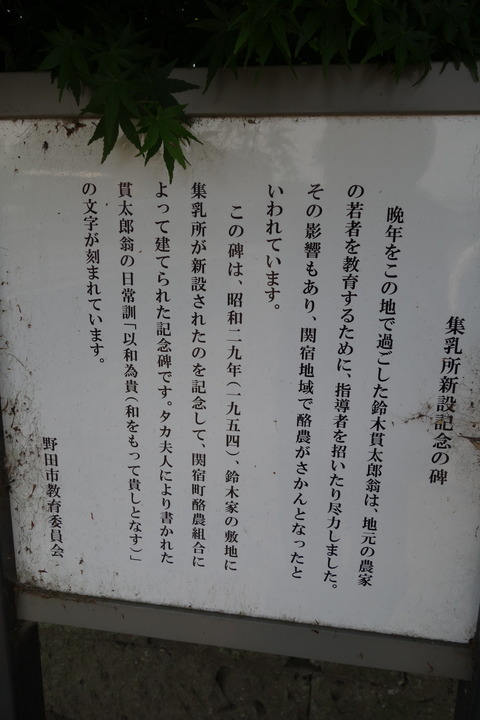 集乳所新設記念の碑
晩年をこの地で過ごした鈴木貫太郎翁は、地元の農家
の若者を教育するために、指導者を招いたり尽力しました。
その影響もあり、関宿地域で酪農がさかんとなったと
いわれています。
この碑は、昭和二九年（一九五四）、鈴木家の敷地に
集乳所が新設されたのを記念して、関宿町酪農組合に
よって建てられた記念碑です。タカ夫人により書かれた
貫太郎翁の日常訓「以和為貴（和をもって貴しとなす）」
の文字が刻まれています。
野田市教育委員会